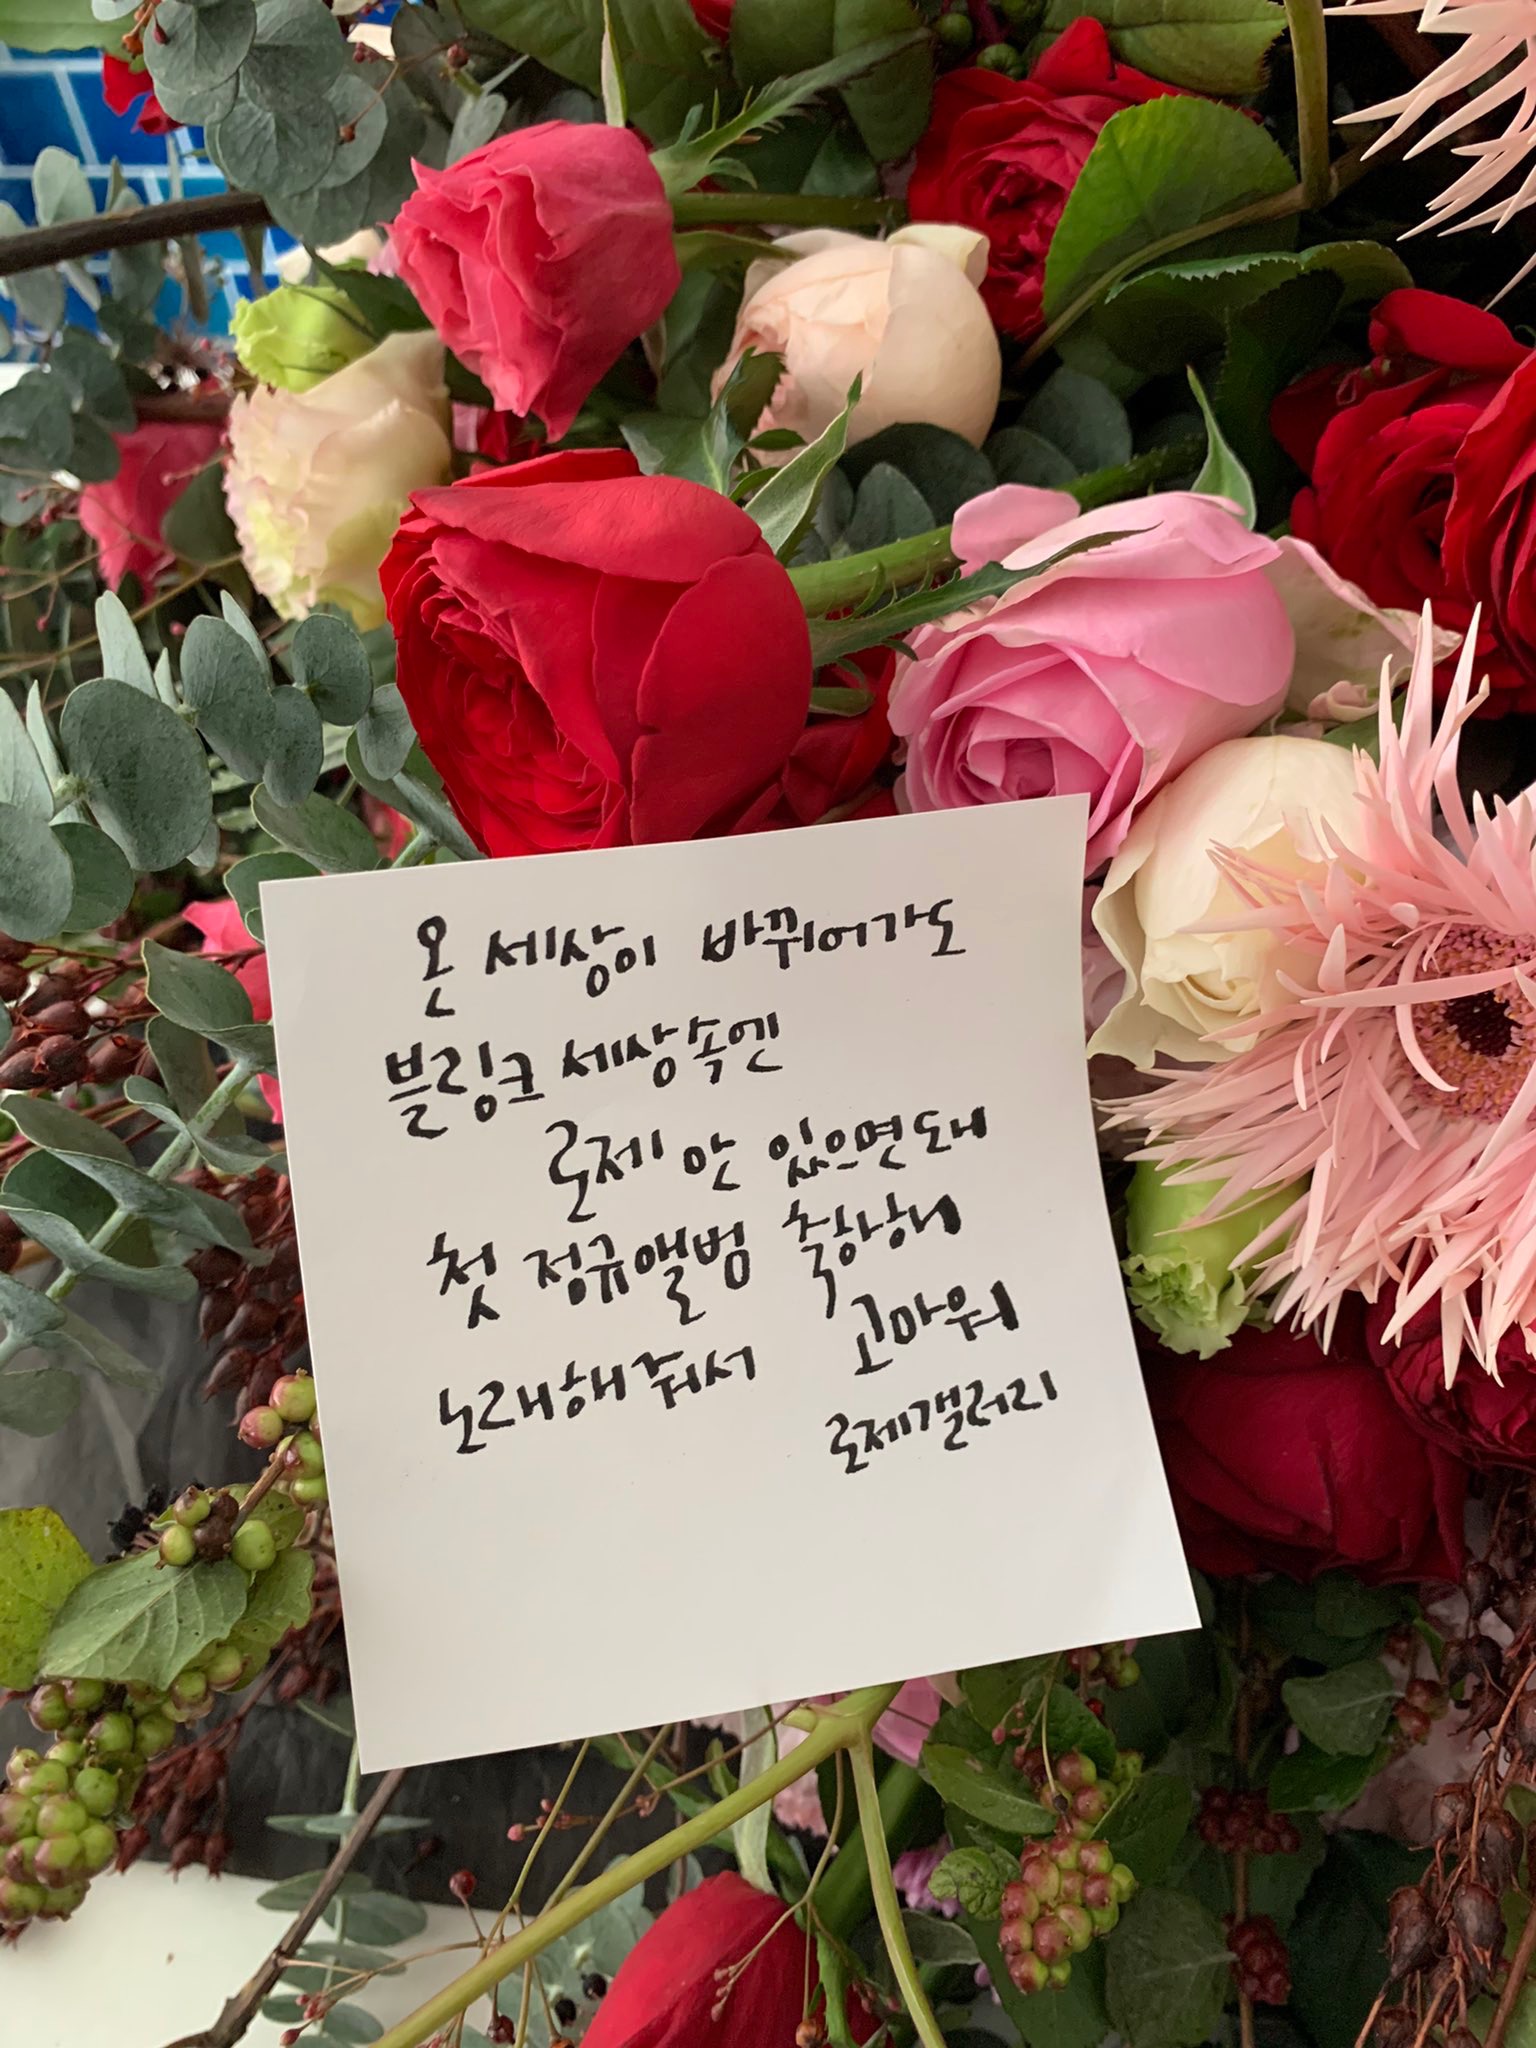 온 세상이 바뀌어가도
블링크 세상속엔
로제 안 잊으면돼
첫 정규앨범 축하해
노래해줘서 고마워
로제갤러리